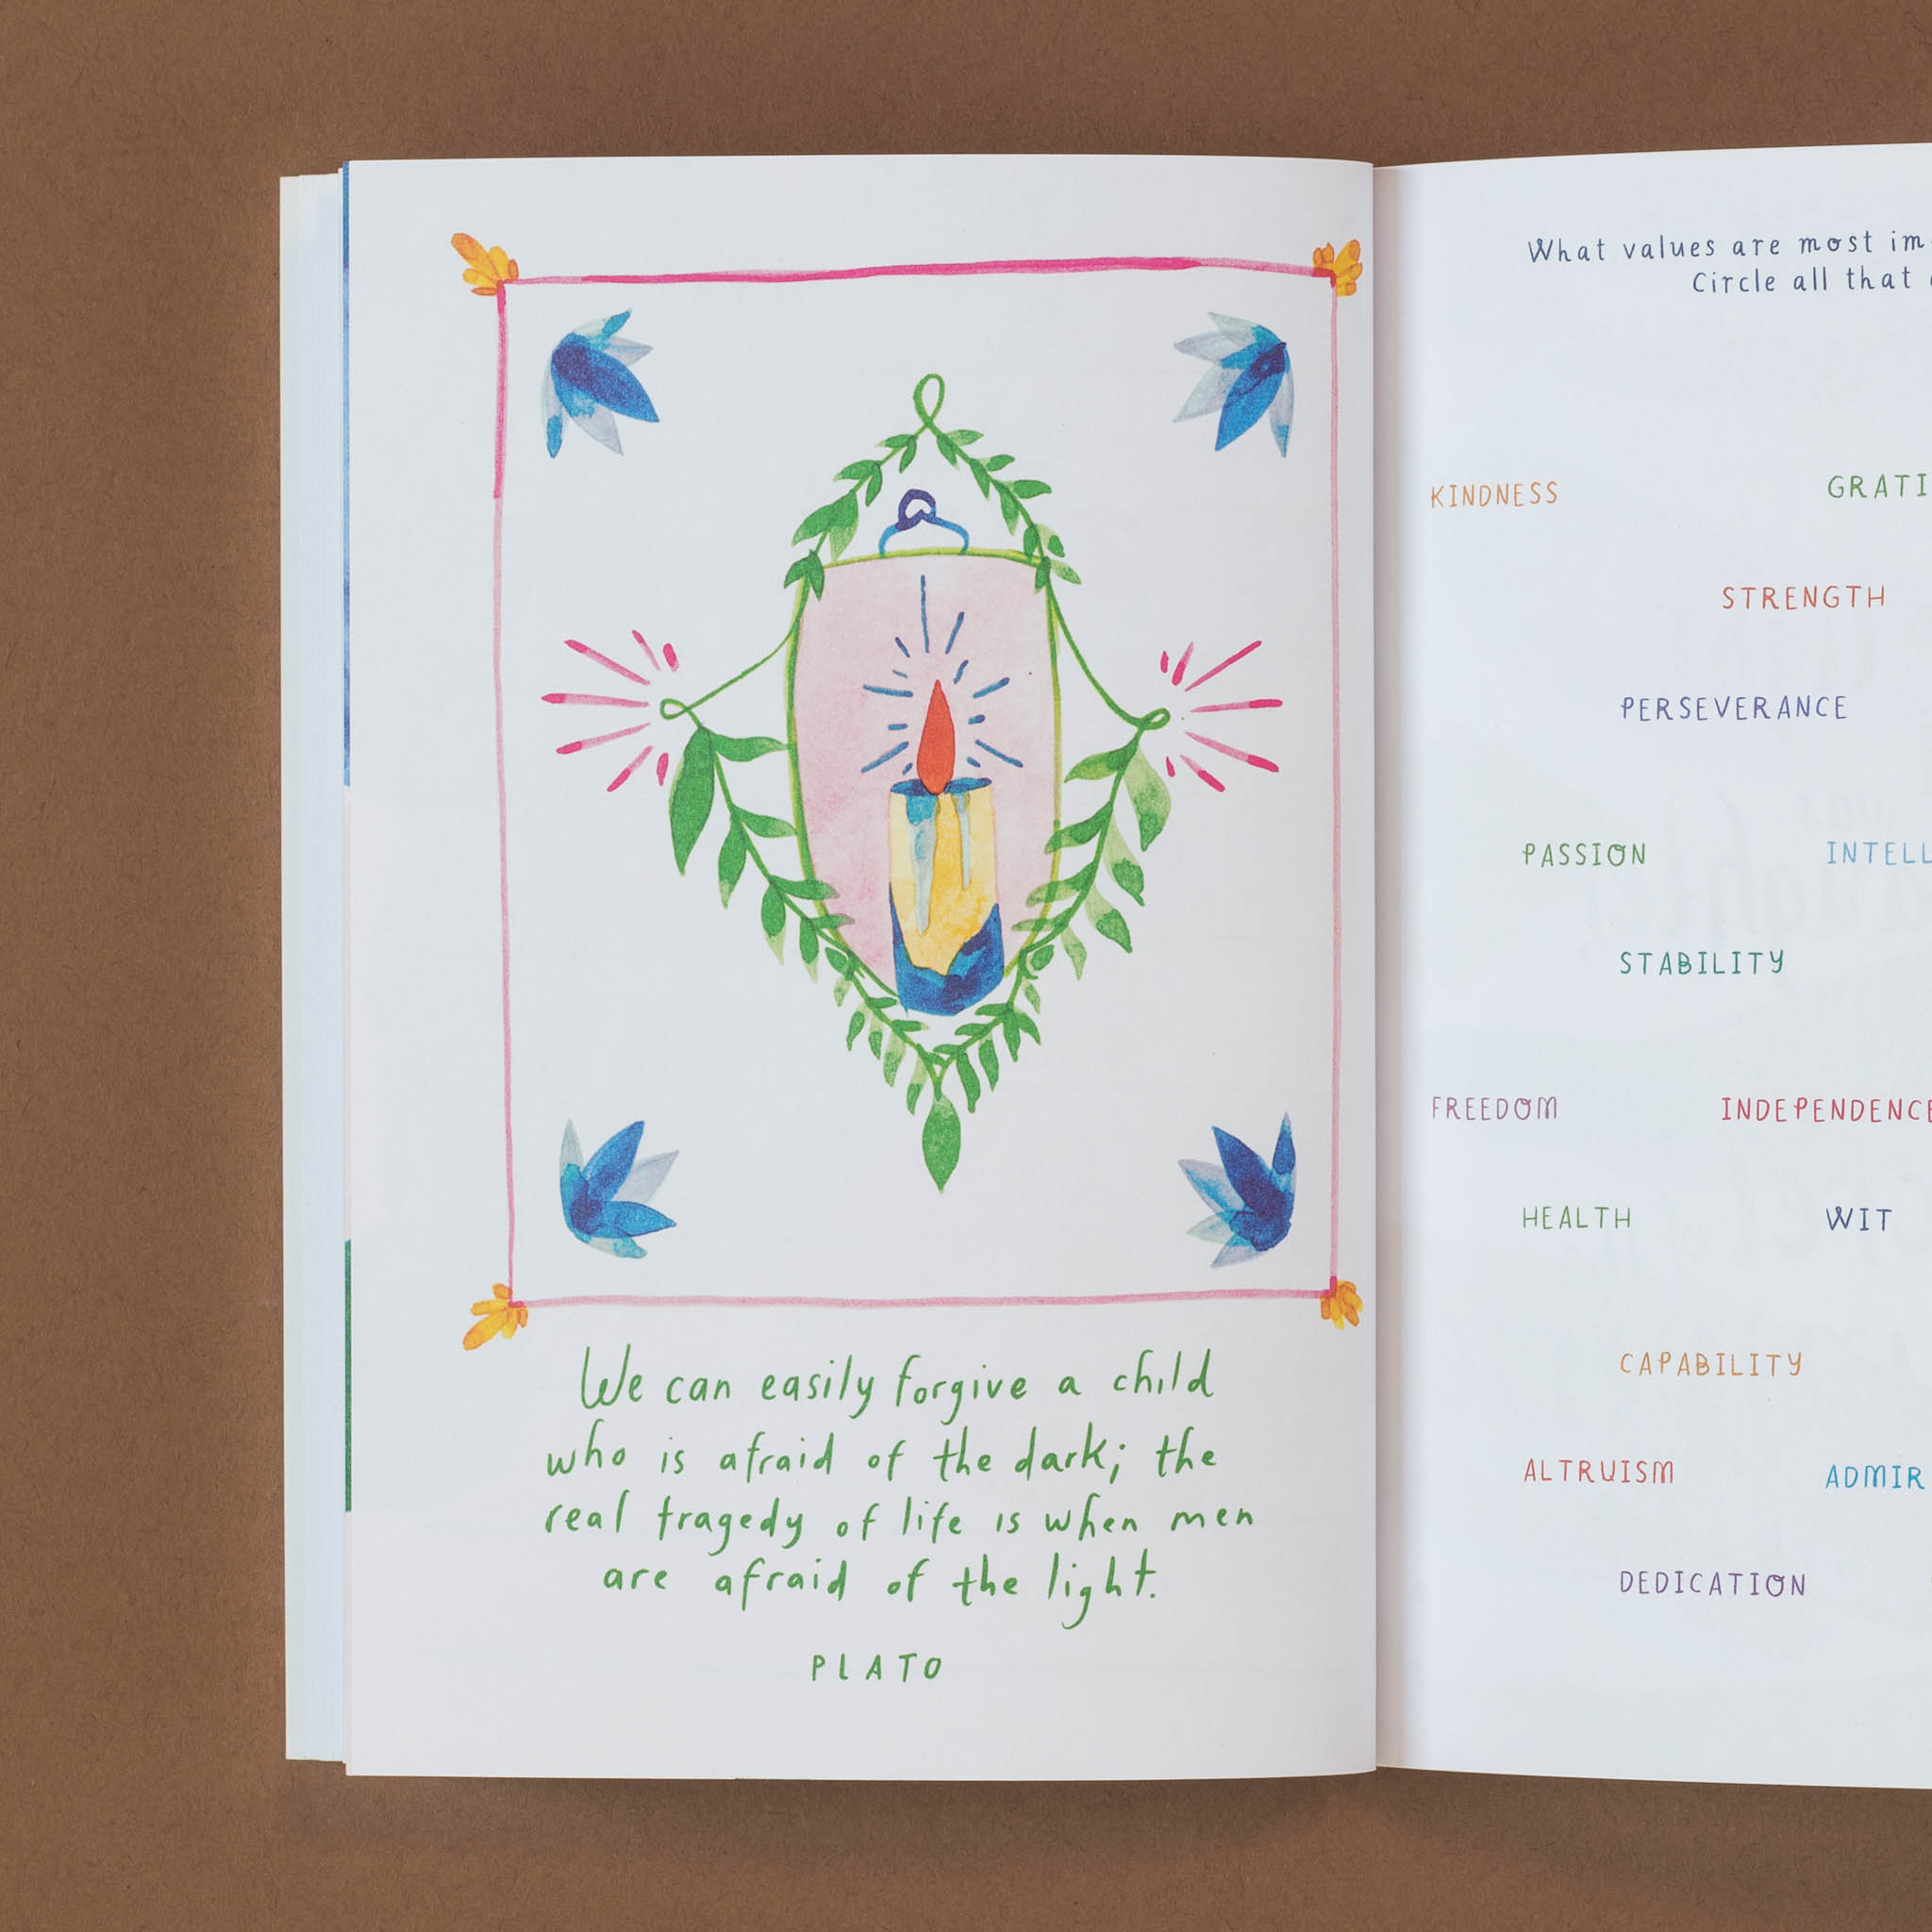 We can easily forgive a child
who is afraid of the dark; the
real tragedy of life is when men
are afraid of the light.
PLATO
What values are most im
Circle all that
KINDNESS GRATI
STRENGTH
PERSEVERANCE
PASSION INTELL
STABILITY
FREEDOM INDEPENDENCE
HEALTH WIT
CAPABILITY
ALTRUISM ADMIR
DEDICATION